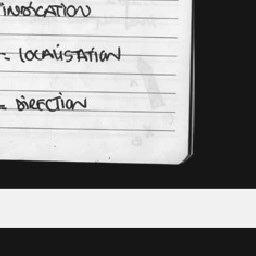 INDICATION
- LOCALISATION
- DIRECTION